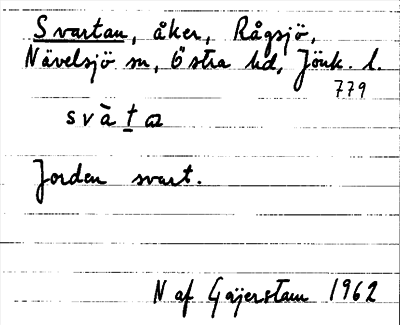 Svartan, åker, Rågsjö,
Nävelsjö sn, Östra hd, Jönk. l.
779
svàṯɑ
Jorden svart.
N af Geijerstam 1962